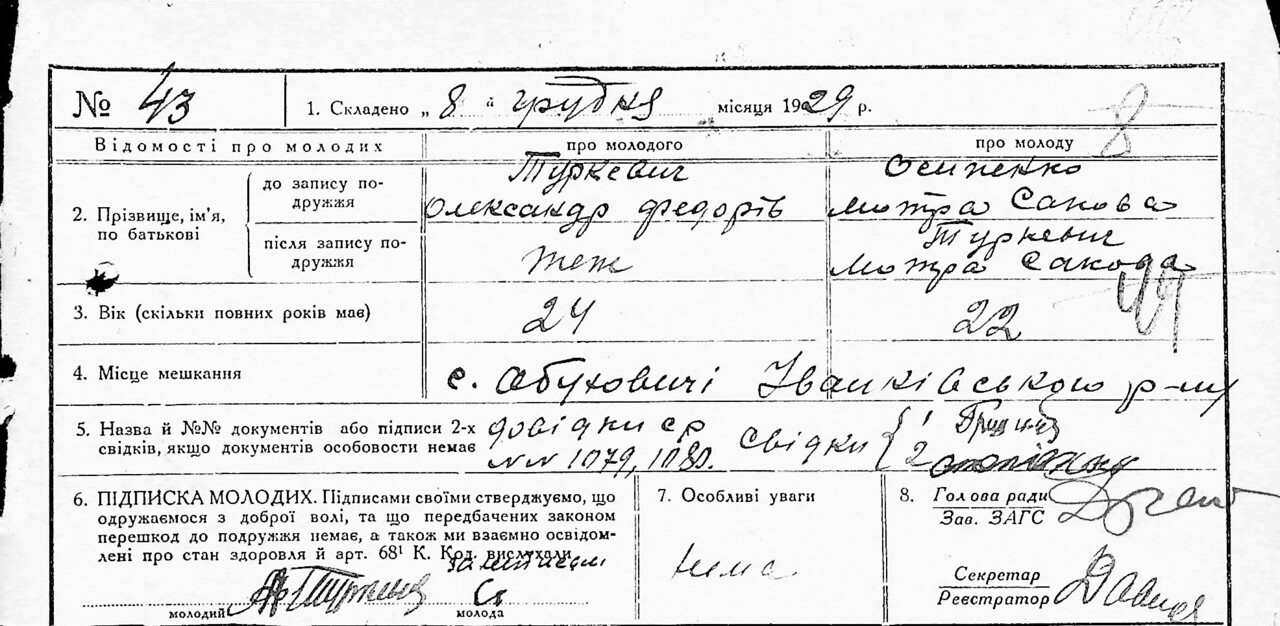 № 43 1. Складено „ 8 " грудня місяця 1929 р.
8
Відомості про молодих про молодого про молоду
2. Прізвище, ім'я, по батькові
до запису подружжя
Туркевич
Олександр Федорів
Осипенко
Мотра Сакова
після запису подружжя
теж
Туркевич
Мотра Сакова
3. Вік (скільки повних років має) 24 22
4. Місце мешкання с. Обуховичі Іванківського р-ну
5. Назва й №№ документів або підписи 2-х
свідків, якщо документів особовости немає
довідки ср
NN 1079, 1080. Свідки 1
2
6. ПІДПИСКА МОЛОДИХ. Підписами своїми стверджуємо, що
одружаємося з доброї волі, та що передбачених законом
перешкод до подружжя немає, а також ми взаємно освідом-
лені про стан здоровля й арт. 68¹ К. Код. вислухали
молодий молода
7. Особливі уваги
нема
8. Голова ради
Зав. ЗАГС
Секретар
Реєстратор